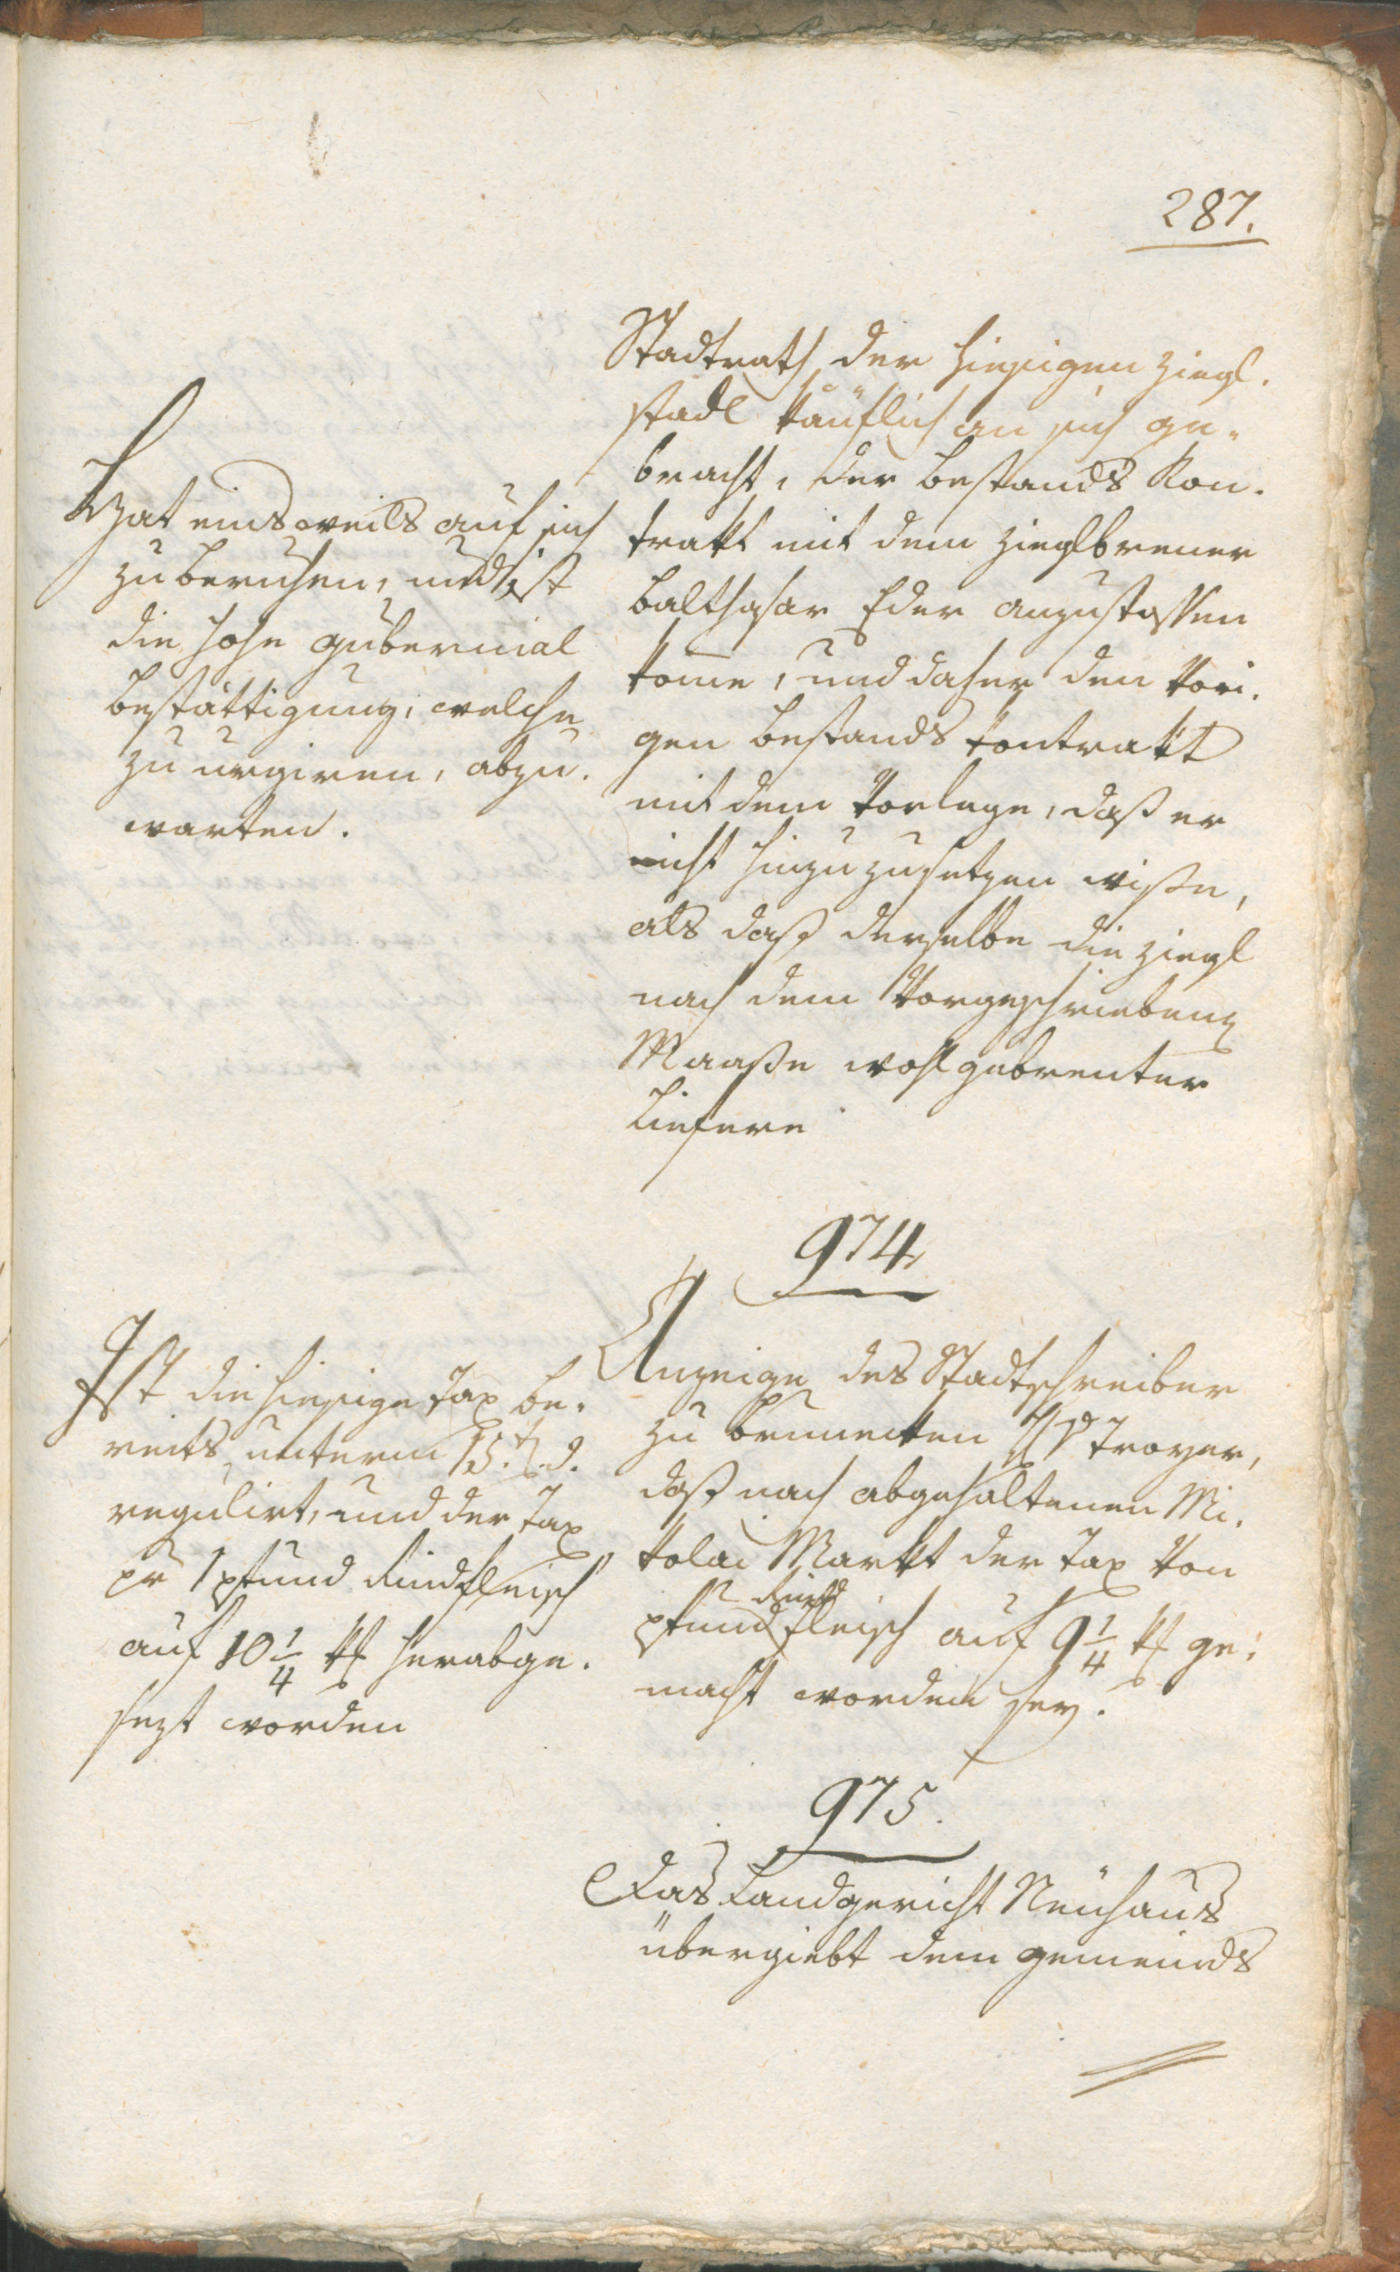 287.
Stadtrath der hiesigen Ziegl-
stadl käuflich an sich ge-
bracht, der Bestands Kon-
trakt mit dem Zieglbrener
Balthasar Eder anzustossen
kome, und daher den vori-
gen Bestands Kontrakt
mit dem Vorlege, daß er
nicht hinzuzusetzen wiße,
als daß derselbe die Ziegl
nach dem Vorgeschriebenen
Maaße wohlgebrenter
Liefere
Hat einsweils auf sich
zu beruhen, und ist
die hohe gubernial
Bestättigung, welche
zu urgiren, abzu-
warten.
974
Anzeige des Stadtschreiber
zu Brunecken Troyer,
daß nach abgehaltenen Ni-
kolai Markt der Tax von
Rind
Pfund fleisch auf 9 1/4 kr ge-
macht worden sey.
Ist die hiesige Tax be-
reits unterm 15. d.
regulirt, und der Tax
pr 1 Pfund Rindfleisch
auf 10 1/4 kr herabge-
sezt worden
975.
Das Landgericht Neuhaus
übergiebt dem Gemeinds